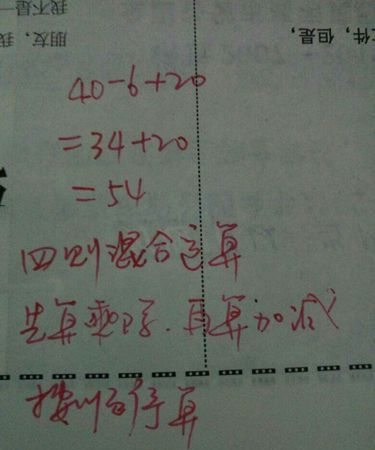 我不是
朋友，我
件，但是，
40-6+20
=34+20
=54
四则混合运算
先算乘除.再算加减
按顺序算